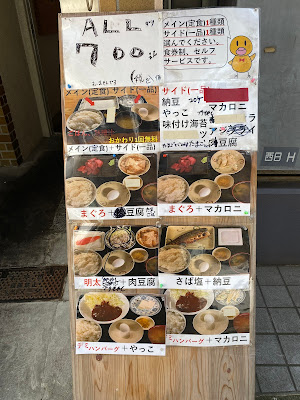 ALL
700
(税込)
メイン(定食)1種類
サイド(一品)1種類
選んでください。
食券制、セルフ
サービスです。
メイン(定食)
サイド(一品)
おかわり1回無料
メイン(定食)+サイド(一品)
サイド(一品)
納豆
マカロニ
やっこ
味付け海苔
まぐろ+
豆腐
まぐろ+マカロニ
明太
+肉豆腐
さば塩+納豆
ハンバーグ+やっこ
ハンバーグ+マカロニ
酉日 H